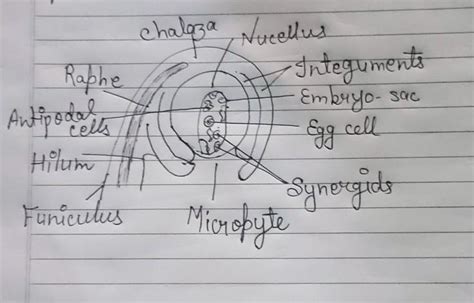 Chalaza
Nucellus
Raphe
Integuments
Embryo-sac
Antipodal
cells
Egg cell
Hilum
Synergids
Funiculus
Micropyte